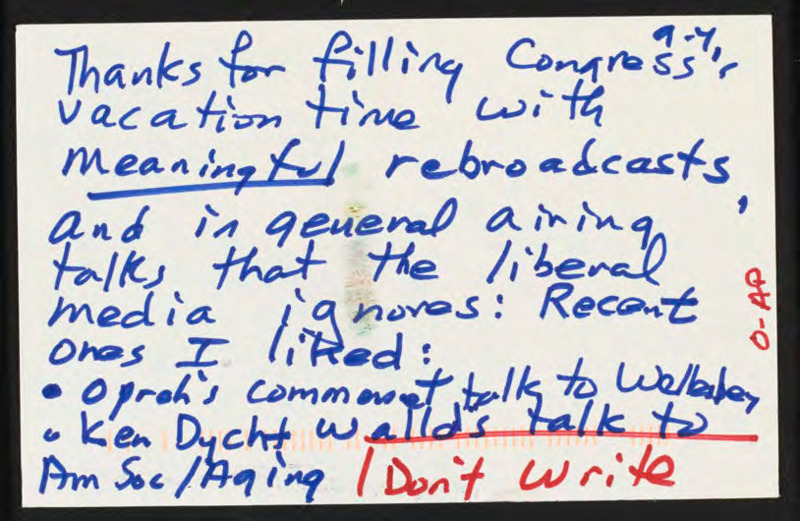 9-4,
Thanks for filling Congress's
vacation time with
meaningful rebroadcasts,
and in general airing
talks that the liberal
media ignores: Recent
ones I liked:
• Oprah's commencmt talk to Wellesley
• Ken Dycht walld's talk to
Am Soc/Aging / Don't write
O-AP